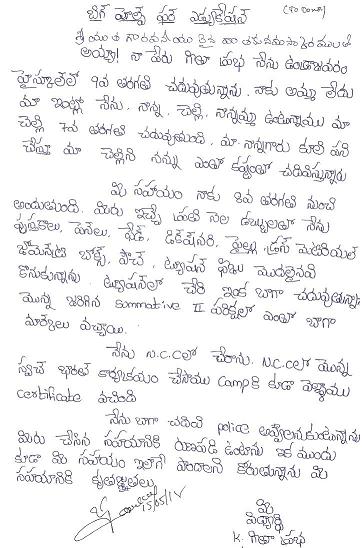 బిగ్ హెల్ప్ ఫర్ ఎడ్యుకేషన్ (To Donor)
శ్రీయుత గౌరవనీయులైన వారికి నమస్కరములతో
అయ్యా! నా పేరు గీతా ప్రభ నేను ఉంగుటూరు
హైస్కూల్‌లో 9వ తరగతి చదువుతున్నాను. నాకు అమ్మ లేదు
మా ఇంట్లో నేను, నాన్న, చెల్లి, నాన్నమ్మ ఉంటున్నాము మా
చెల్లి 7వ తరగతి చదువుతుంది. మా నాన్నగారు కూలి పని
చేస్తూ మా చెల్లిని నన్ను ఎంతో కష్టంతో చదివిస్తున్నారు
మీ సహాయం నాకు 8వ తరగతి నుంచి
అందుతుంది. మీరు ఇచ్చే ప్రతి నెల డబ్బులతో నేను
పుస్తకాలు, పెన్‌లు, ప్యాడ్, డిక్షనరీ, డ్రస్ మెటీరియల్
జామెంట్రీ బాక్స్, పౌచ్, ట్యూషన్ ఫీజు మొదలైనవి
కొనుకున్నాను. ట్యూషన్‌లో చేరి ఇంకా బాగా చదువుతున్నాను
మొన్న జరిగిన Summative II పరీక్షల్లో ఎంతో బాగా
మార్కులు వచ్చాయి.
నేను N.C.Cలో చేరాను. N.C.Cలో మొన్న
స్వచ్ఛ భారత్ కార్యక్రమం చేసాము Campకి కూడా వెళ్ళాము
Certificate వచ్చింది
నేను బాగా చదివి police అవ్వాలనుకుంటున్నాను
మీరు చేసిన సహాయానికి రుణపడి ఉంటాను ఇక ముందు
కూడా మీ సహాయం ఇలాగే పొందాలని కోరుతున్నాను మీ
సహాయానికి కృతజ్ఞతలు
15/05/15
మీ
విద్యార్థి
K. గీతా ప్రభ